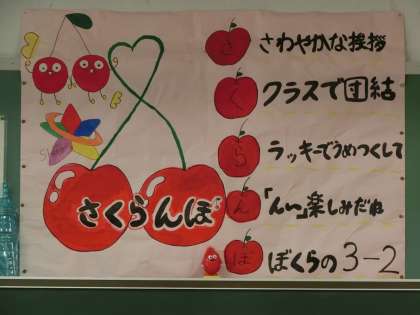 さくらんぼ
さ さわやかな挨拶
く クラスで団結
ら ラッキーでうめつくして
ん 「んー」楽しみだね
ぼ ぼくらの3-2